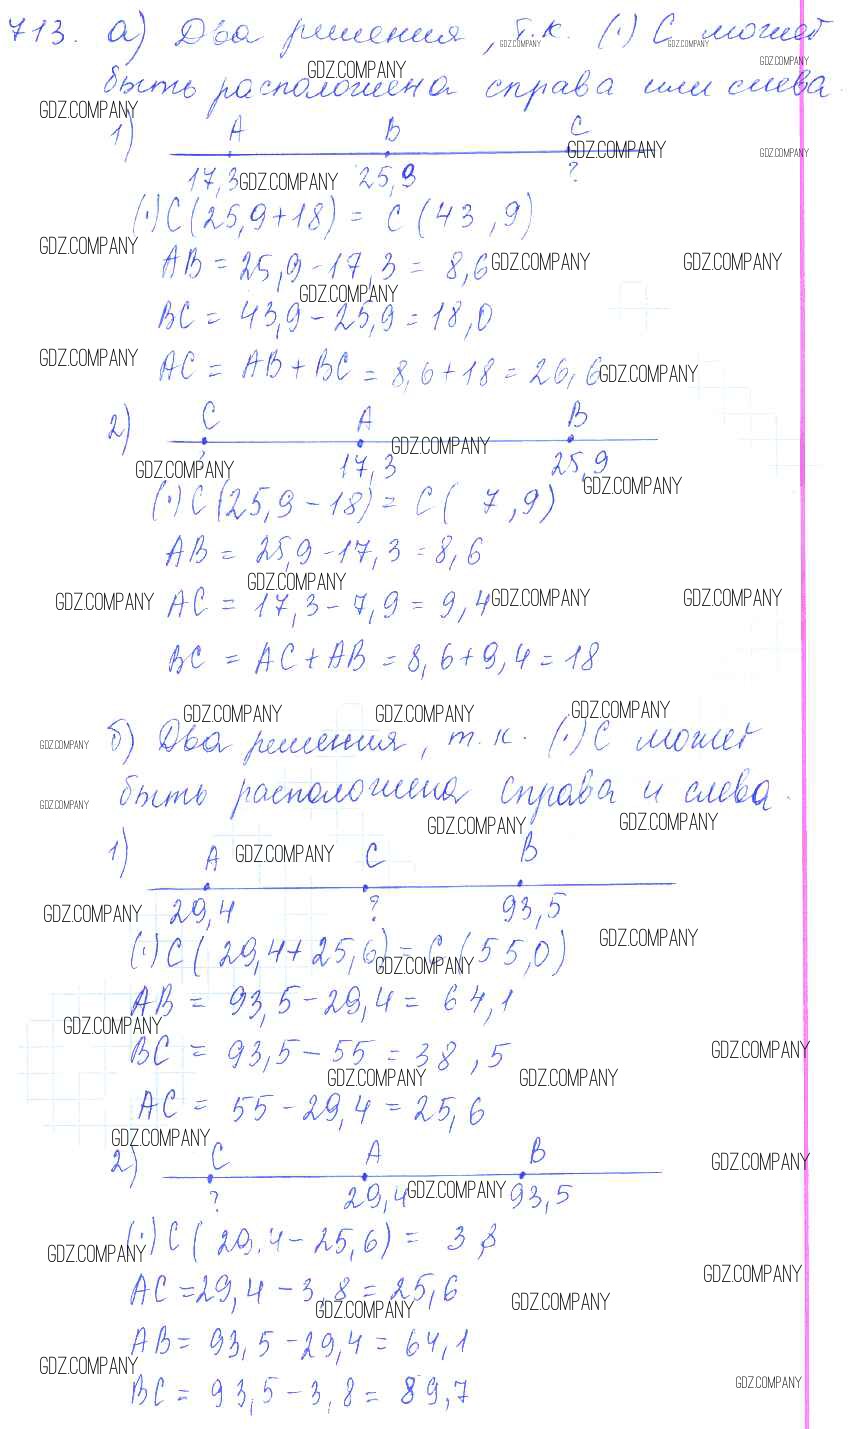 713. а) Два решения, т.к. (·) С может
быть расположена справа или слева.
1) A B C
17,3 25,9 ?
(·) C (25,9+18) = C (43,9)
AB = 25,9 - 17,3 = 8,6
BC = 43,9 - 25,9 = 18,0
AC = AB + BC = 8,6 + 18 = 26,6
2) C A B
17,3 25,9
(·) C (25,9 - 18) = C ( 7,9)
AB = 25,9 - 17,3 = 8,6
AC = 17,3 - 7,9 = 9,4
BC = AC + AB = 8,6 + 9,4 = 18
б) Два решения, т.к. (·) С может
быть расположена справа и слева.
1) A C B
29,4 ? 93,5
(·) C ( 29,4 + 25,6) = C (55,0)
AB = 93,5 - 29,4 = 64,1
BC = 93,5 - 55 = 38,5
AC = 55 - 29,4 = 25,6
2) C A B
? 29,4 93,5
(·) C ( 29,4 - 25,6) = 3,8
AC = 29,4 - 3,8 = 25,6
AB = 93,5 - 29,4 = 64,1
BC = 93,5 - 3,8 = 89,7
GDZ.COMPANY